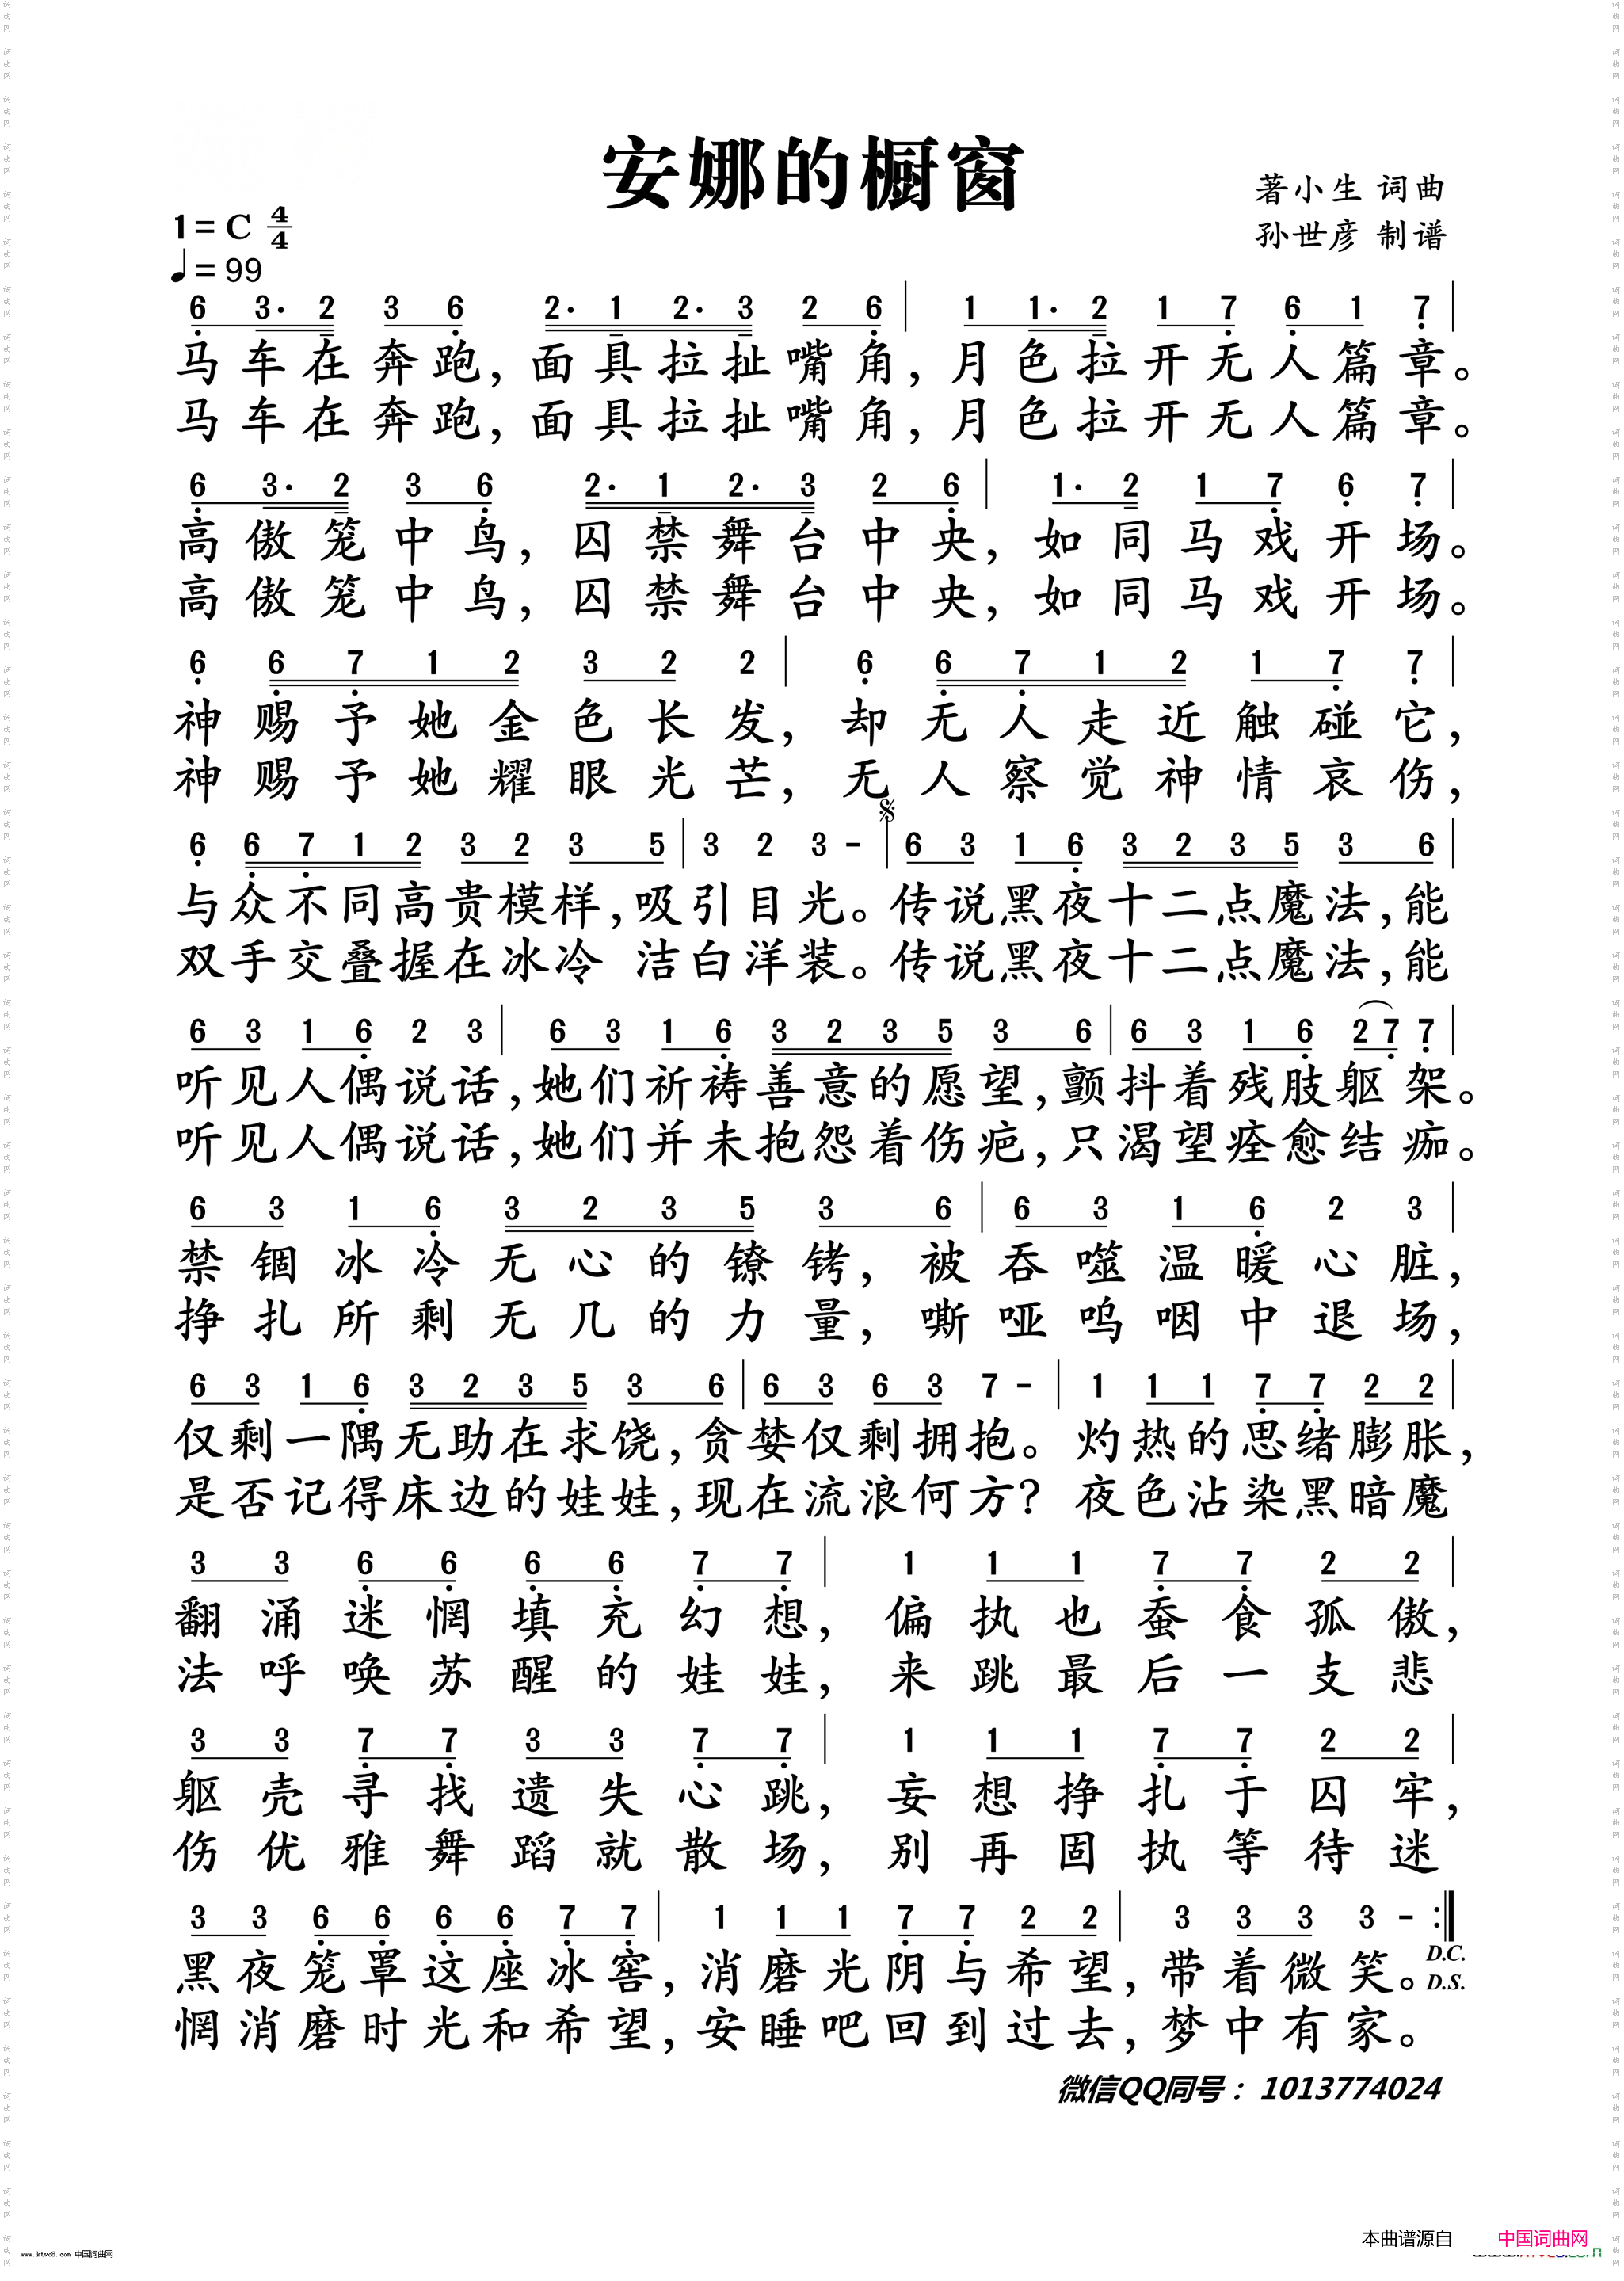 安娜的橱窗
著小生 词曲
孙世彦 制谱
1= C 4/4
♩= 99
6 3· 2 3 6 2· 1 2· 3 2 6 | 1 1· 2 1 7 6 1 7 |
马车在奔跑，面具拉扯嘴角，月色拉开无人篇章。
马车在奔跑，面具拉扯嘴角，月色拉开无人篇章。
6 3· 2 3 6 2· 1 2· 3 2 6 | 1· 2 1 7 6 7 |
高傲笼中鸟，囚禁舞台中央，如同马戏开场。
高傲笼中鸟，囚禁舞台中央，如同马戏开场。
6 6 7 1 2 3 2 2 | 6 6 7 1 2 1 7 7 |
神赐予她金色长发，却无人走近触碰它，
神赐予她耀眼光芒，无人察觉神情哀伤，
6 6 7 1 2 3 2 3 5 | 3 2 3 - | 6 3 1 6 3 2 3 5 3 6 |
与众不同高贵模样，吸引目光。传说黑夜十二点魔法，能
双手交叠握在冰冷 洁白洋装。传说黑夜十二点魔法，能
6 3 1 6 2 3 | 6 3 1 6 3 2 3 5 3 6 | 6 3 1 6 2 7 7 |
听见人偶说话，她们祈祷善意的愿望，颤抖着残肢躯架。
听见人偶说话，她们并未抱怨着伤疤，只渴望痊愈结痂。
6 3 1 6 3 2 3 5 3 6 | 6 3 1 6 2 3 |
禁锢冰冷无心的镣铐，被吞噬温暖心脏，
挣扎所剩无几的力量，嘶哑呜咽中退场，
6 3 1 6 3 2 3 5 3 6 | 6 3 6 3 7 - | 1 1 1 7 7 2 2 |
仅剩一隅无助在求饶，贪婪仅剩拥抱。灼热的思绪膨胀，
是否记得床边的娃娃，现在流浪何方？夜色沾染黑暗魔
3 3 6 6 6 6 7 7 | 1 1 1 7 7 2 2 |
翻涌迷惘填充幻想，偏执也蚕食孤傲，
法呼唤苏醒的娃娃，来跳最后一支悲
3 3 7 7 3 3 7 7 | 1 1 1 7 7 2 2 |
躯壳寻找遗失心跳，妄想挣扎于囚牢，
伤优雅舞蹈就散场，别再固执等待迷
3 3 6 6 6 6 7 7 | 1 1 1 7 7 2 2 | 3 3 3 3 - :|
黑夜笼罩这座冰窖，消磨光阴与希望，带着微笑。D.C.
D.S.
惘消磨时光和希望，安睡吧回到过去，梦中有家。
微信QQ同号：1013774024
本曲谱源自 中国词曲网
www.ktvc8.com 中国词曲网